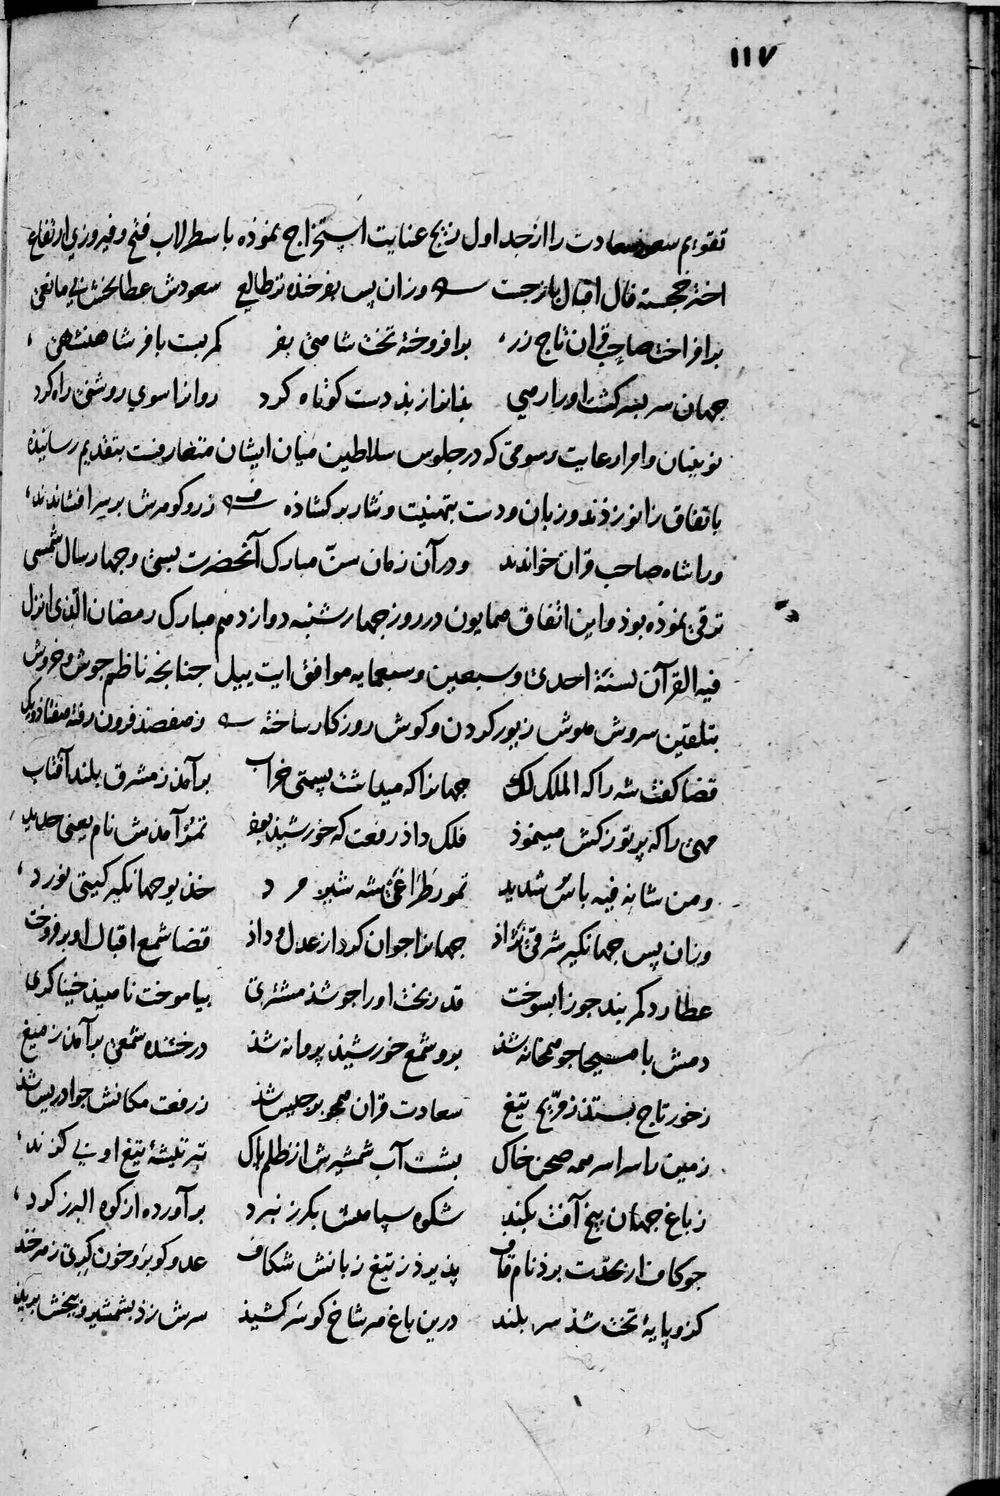 ١١٧
تقویم سعود سعادت را از جداول زیج عنایت استخراج نموذه باسطرلاب فتح و فیروزی ارتفاع
اختر خجسته فال اقبال بازجست وزان پس بفرخنده تر طالعی سعودش عطابخش بی مانعی
برافراخت صاحب قران تاج زر برافروخته تخت شاهی بفر کمر بست بافر شاهنشهی
جهان سربسر کشت او را رهی بذ دست کوتاه کرد روانرا سوی روشنی راه کرد
نوینیان و امرا رعایت رسومی که در جلوس سلاطین میان ایشان متعارفست بتقدیم رسانیذه
باتفاق زانو زذند و زبان و دست بتهنیت و نثار برکشاذه زر و کوهرش بر سر افشاندند
ورا شاه صاحب قران خواندند و در آن زمان سنّ مبارک آنحضرت ببست و چهار سال شمسی
ترقی نموذه بوذ و این اتفاق همایون در روز چهارشنبه دوازدهم مبارک رمضان الذی انزل
فیه القرآن لسنة احدی و سبعین و سبعمایه موافق ایت ییل چنانچه ناظم جوش و خروش
بتلقین سروش هوش زیور کردن و کوش روزکار ساخته ز هفصد فزون رفته هفتاذ و یک
قضا کفت شه را که الملک لک جهانرا که میداشت پستی خراب برآمد ز مشرق بلند آفتاب
مهی را که پرتو زکش مینموذ فلک داذ رفعت که خورشید بوذ تمر آمدش نام یعنی حدید
و من شانه فیه باس شدید تمور طراغای شه شیر مرد خدیو جهانکیر کیتی نورد
وزان پس جهانکیر شرقی نژاذ جهانرا جوان کرد از عدل و داذ قضا شمع اقبال او برفروخت
عطارد کمربند جوزا بسوخت قدر بخت او را چو شذ مشتری بیاموخت ناهید خنیاکری
دمش با مسیحا چو همخانه شذ برو شمع خورشید پروانه شذ درخشنده شمعی برآمد ز میغ
ز خور تاج بستد ز مرّیخ تیغ سعادت قران همچو برجیس شذ ز رفعت مکانش چو ادریس شذ
زمین را سراسر همه صحن خاک بشست آب شمشیرش از ظلم پاک تبر تیشهٔ تیغ او بی کزند
ز باغ جهان بیخ آفت بکند شکوه سپاهش بکرز نبرد برآورده از کوه البرز کرد
چو کاف ار بحدّت برذ نام قاف پذیرذ ز تیغ زبانش شکاف عدو کو بزو خون کری زهرخند
کزو پایهٔ تخت شذ سربلند درین باغ هر شاخ کو سر کشید سرش زذ بشمشیر و بیخش برید